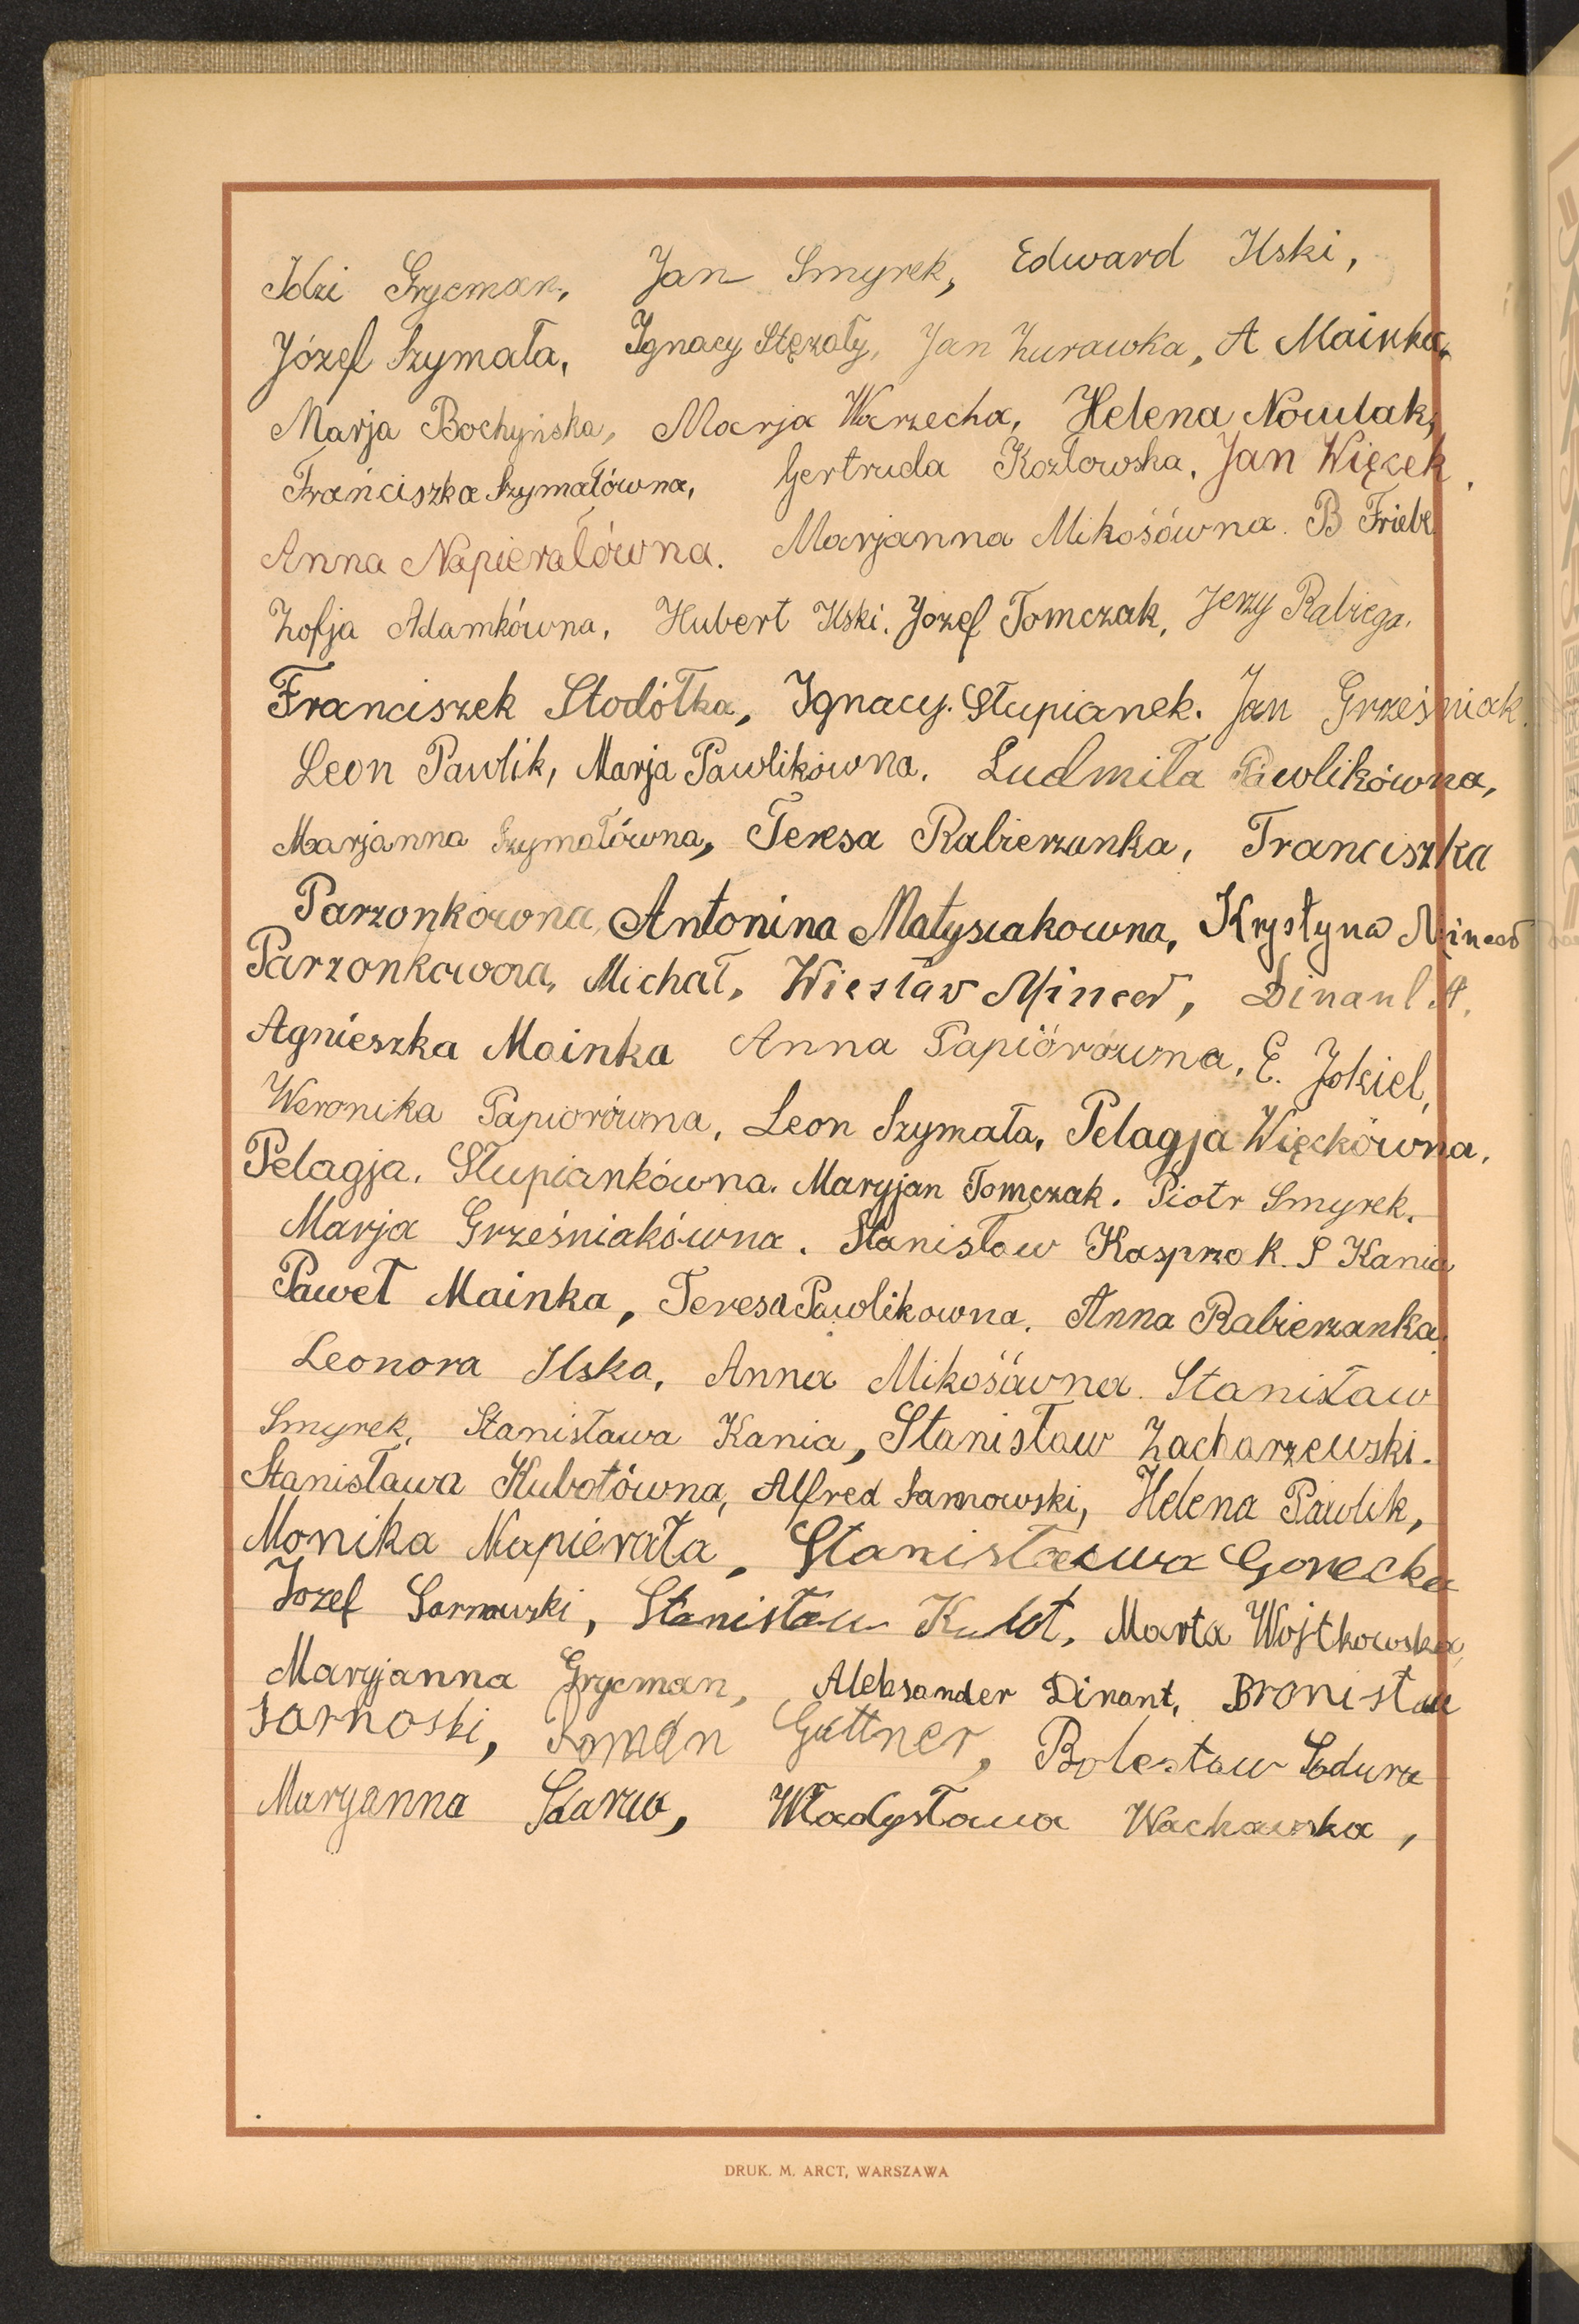 Idzi Grycman, Jan Smyrek, Edward Ilski,
Józef Szymała, Ignacy Stęzały, Jan Żurawka, A Mainka,
Marja Bochyńska, Marja Warzecha, Helena Nowlak,
Franciszka Szymałówna, Gertruda Kozłowska, Jan Więcek,
Anna Napierałówna. Marjanna Mikośówna. B Friebe
Zofja Adamkówna, Hubert Ilski. Józef Tomczak, Jerzy Rabiega.
Franciszek Stodółka, Ignacy Słupianek. Jan Grześniak.
Leon Pawlik, Marja Pawlikówna. Ludmiła Pawlikówna,
Marjanna Szymałówna, Teresa Rabierzanka, Franciszka
Parzonkówna, Antonina Matysiakowna, Krystyna Mincer
Parzonkowna, Michał, Wiesław Mincer, Dinant A.
Agnieszka Mainka Anna Papiórówna, E. Jokiel,
Weronika Papiorówna, Leon Szymała, Pelagja Więckówna.
Pelagja. Słupiankówna. Maryjan Tomczak. Piotr Smyrek.
Marja Grześniakówna. Stanisław Kasprzak. S Kania
Paweł Mainka, Teresa Pawlikowna. Anna Rabierzanka.
Leonora Ilska, Anna Mikośówna. Stanisław
Smyrek, Stanisława Kania, Stanisław Zacharzewski.
Stanisława Kubotówna, Alfred Sarnowski, Helena Pawlik,
Monika Napierała, Stanisława Gorecka
Jozef Sarnowski, Stanisław Kubot, Marta Wojtkowska,
Maryjanna Grycman, Aleksander Dinant, Bronisław
Sarnoski, Roman Güttner, Bolesław Sadura
Maryanna Szarw, Władysława Wachawska,
DRUK. M. ARCT, WARSZAWA